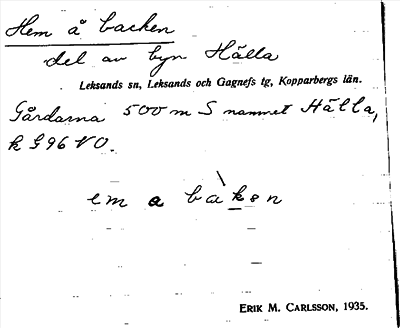 Hem å backen
del av byn Hälla
Leksands sn, Leksands och Gagnefs tg, Kopparbergs län.
Gårdarna 500 m S namnet Hälla,
k G96 VO.
em a bàkən
ERIK M. CARLSSON, 1935.